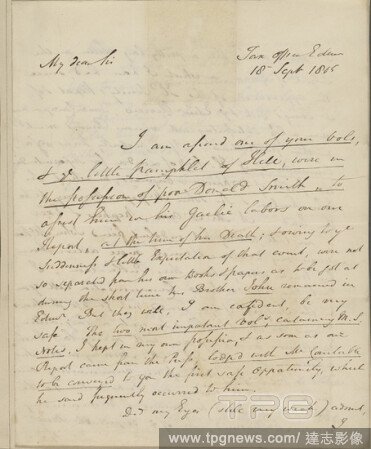 Tax office Edinr
18 Sept 1805
My dear Sir
I am afraid one of your vols,
& ye little pamphlet of Skele, were in
the possession of poor Donald Smith, to
assist him in his Gaelic labors on our
Report, at the time of his Death; & owing to ye
Suddenness & little Expectation of that event, were not
so separated from his own Books & papers as to be got at
during the short time his Brother John remained in
Edinr But they will, I am confident, be very
safe. The two most important vols, containing M.S.
Notes, I kept in my own possession, & as soon as our
Report came from the Press, lodged with Mr Constable
to be conveyed to you the first safe opportunity, which
he said frequently occurred to him.
Did my Eyes (still very weak) admit,
I
TPG
www.tpgnews.com | 達志影像